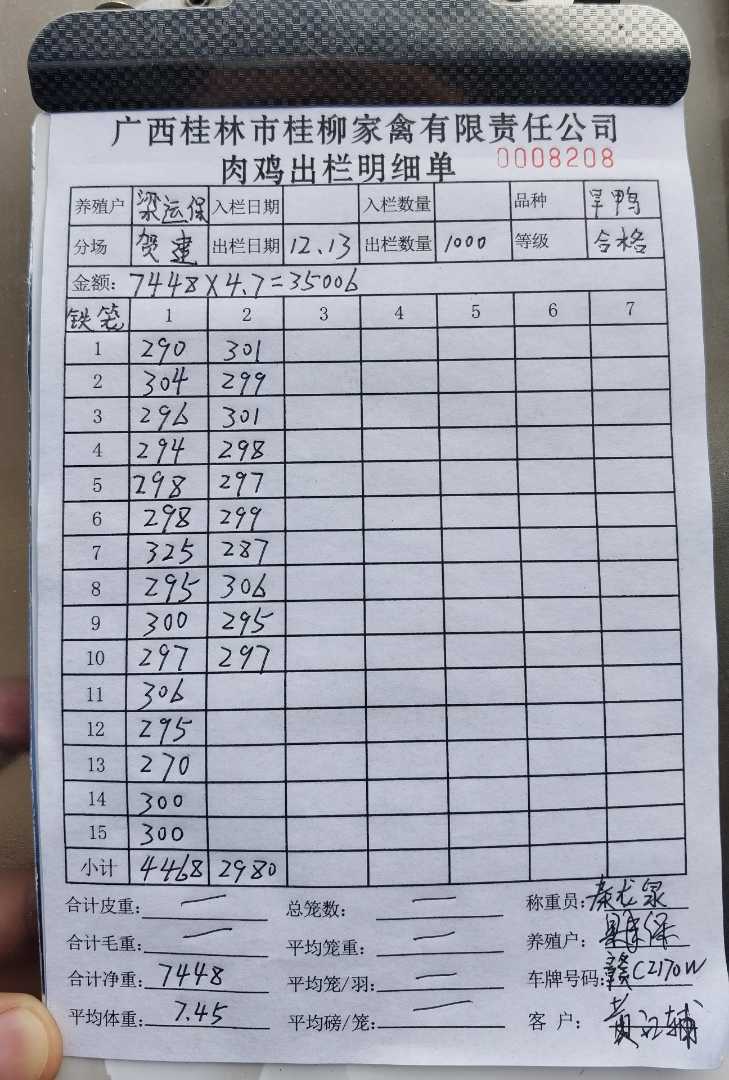 广西桂林市桂柳家禽有限责任公司
肉鸡出栏明细单 0008208
养殖户 梁运保 入栏日期 入栏数量 品种 旱鸭
分场 贺建 出栏日期 12.13 出栏数量 1000 等级 合格
金额: 7448×4.7=35006
铁笼 1 2 3 4 5 6 7
1 290 301
2 304 299
3 296 301
4 294 298
5 298 297
6 298 299
7 325 287
8 295 306
9 300 295
10 297 297
11 306
12 295
13 270
14 300
15 300
小计 4468 2980
合计皮重: 一 总笼数: 一 称重员:
合计毛重: 一 平均笼重: 一 养殖户:
合计净重: 7448 平均笼/羽: 一 车牌号码: 赣C2170W
平均体重: 7.45 平均磅/笼: 一 客 户: